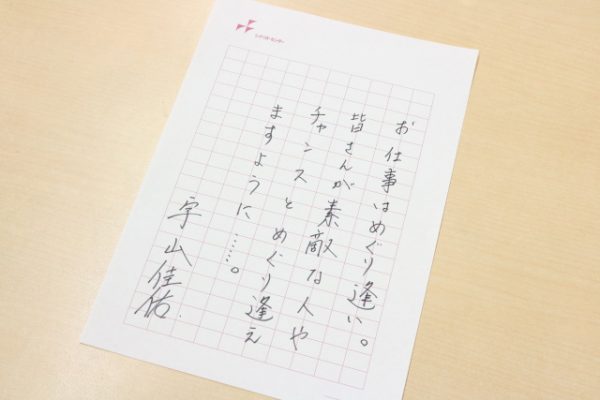 お仕事はめぐり逢い。
皆さんが素敵な人や
チャンスとめぐり逢え
ますように……。
宇山佳佑